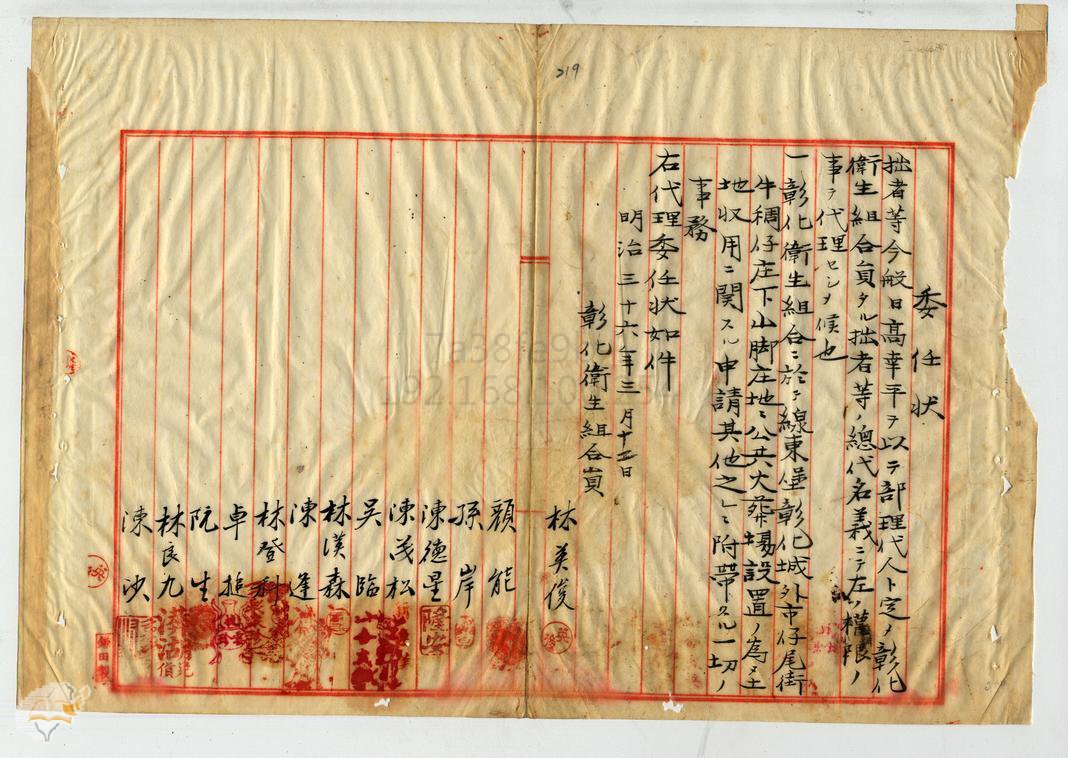 委任状
拙者等今般日高幸平ヲ以テ部理代人ト定メ彰化
衛生組合員タル拙者等ノ總代名義ニテ左ノ權限ノ
事ヲ代理セシメ候也
一彰化衛生組合ニ於テ線東堡彰化城外市仔尾街
牛稠仔庄下山脚庄地ニ公共火葬場設置ノ為メ土
地収用ニ関スル申請其他之レニ附帶スル一切ノ
事務
右代理委任状如件
明治三十六年三月十五日
彰化衛生組合員
林英俊
顔能
孫岸
陳德星
陳茂松
吳臨
林漢森
陳逢
林登科
卓搥
阮生
林良九
219
隆安
7a38fe9b-1 2023-02-27 12:31